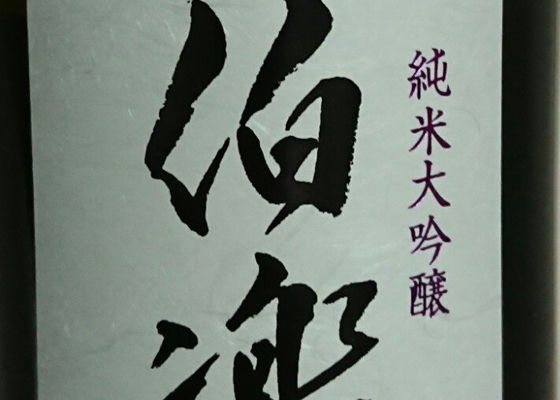 純米大吟醸
伯楽